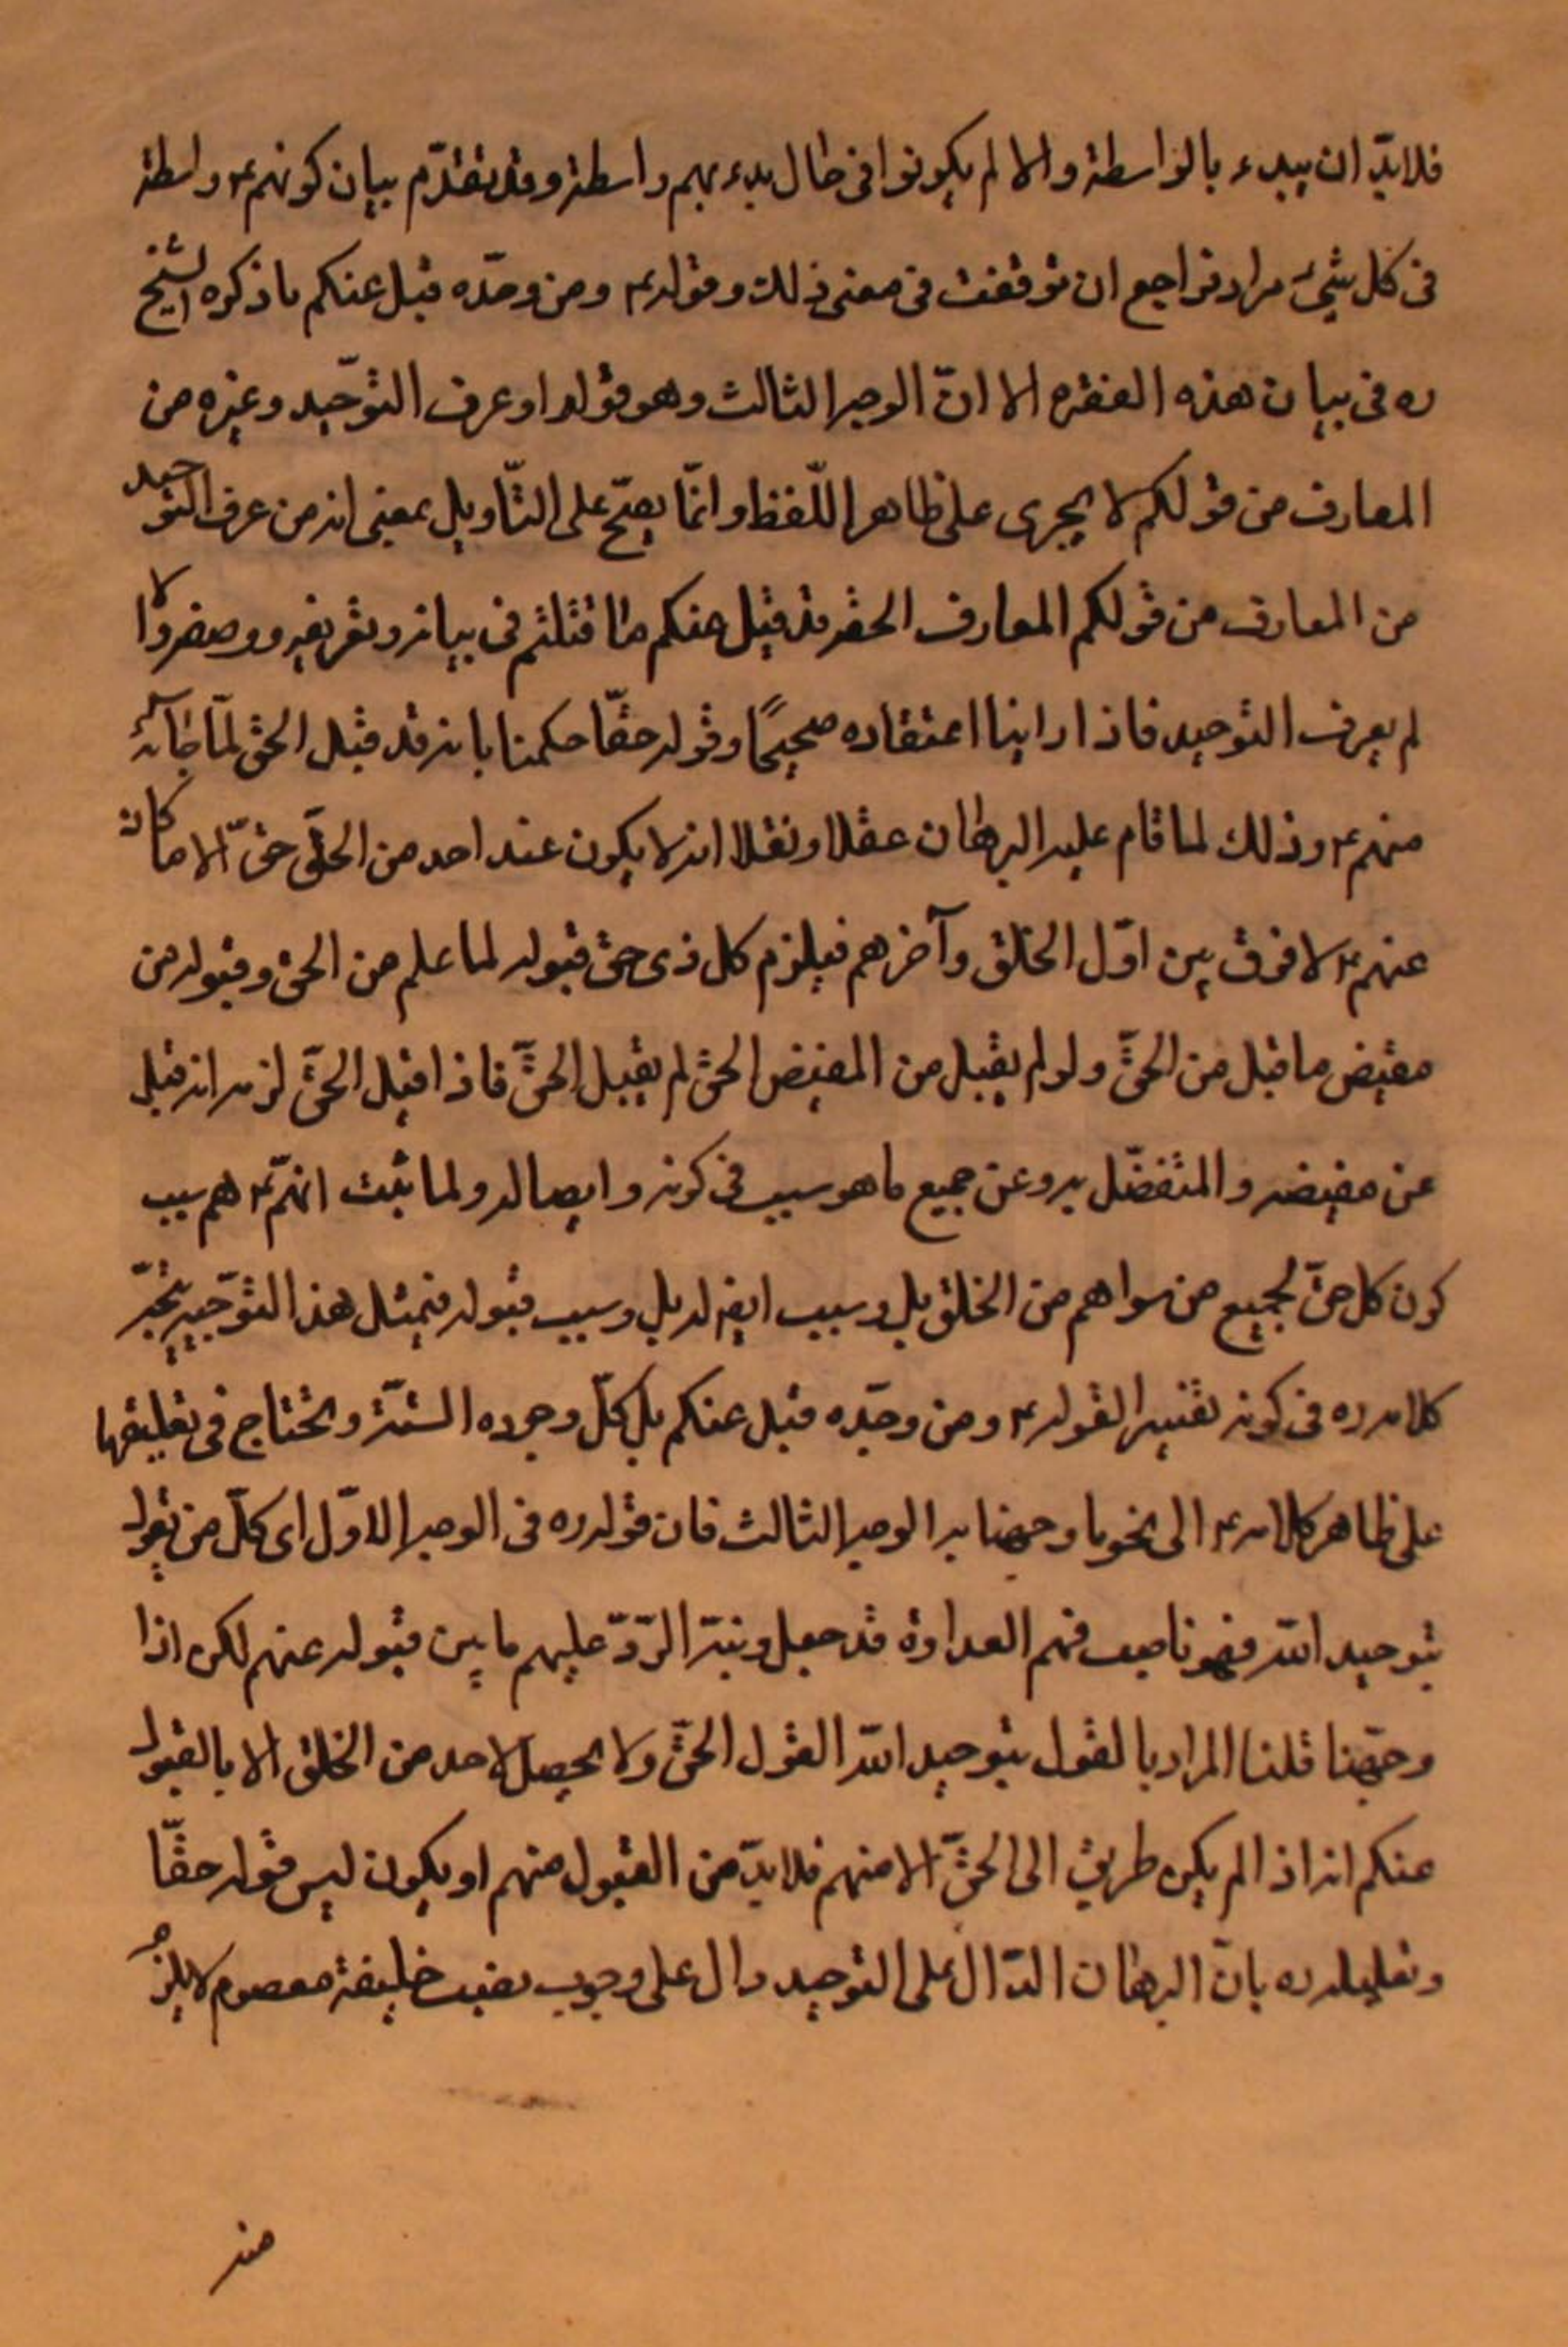 فلابدّ ان يبدء بالواسطة والا لم يكونوا فى حال بدء بهم واسطة وقد تقدّم بيان كونهم ع واسطة
فى كل شئ مرارا فراجع ان توقفت فى معنى ذلك وقوله ع ومن وحّده قبل عنكم ما ذكره الشيخ
ره فى بيان هذه الفقره الا انّ الوجه الثالث وهو قوله او عرف التوحّيد وغيره من
المعارف من قولكم لا يجرى على ظاهر اللّفظ وانمّا يصحّ على التّاويل بمعنى انه من عرف التوحيد
من المعارف من قولكم المعارف الحقه قد قبل عنكم ما قلتم فى بيانه وتعريفه ووصفه والا
لم يعرف التوحيد فاذا راينا اعتقاده صحيحًا وقوله حقّا حكمنا بانه قد قبل الحق لمّا جائه
منهم ع وذلك لما قام عليه البرهان عقلا ونقلا انه لا يكون عند احد من الخلق حق الا ما كان
عنهم ع لا فرق بين اوّل الخلق وآخرهم فيلزم كل ذى حق قبوله لما علم من الحق وقبوله من
مفيض ما قبل من الحقّ ولو لم يقبل من المفيض الحق لم يقبل الحقّ فاذا قبل الحقّ لزمه انه قبل
عن مفيضه والمتفضّل به وعن جميع ما هو سبب فى كونه وايصاله ولما ثبت انهّم ع هم سبب
كون كل حقّ لجميع من سواهم من الخلق بل وسبب ايض له بل وسبب قبوله فبمثل هذا التوّجيه يتجّه
كلامه ره فى كونه تفسيرا لقوله ع ومن وحّده قبل عنكم بل كلّ وجوده الستّة وتحتاج فى تعليقها
على ظاهر كلامه ع الى نحو ما وجهنا به الوجه الثالث فان قوله ره فى الوجه الاوّل اى كلّ من يقول
بتوحيد الله فهو ناصب فهم العداوة قد جعل رتبة الرّدّ عليهم ما بين قبوله عنهم لكن اذا
وجّهنا قلنا المراد بالقول بتوحيد الله القول الحقّ ولا يحصل لاحد من الخلق الا بالقبول
عنكم انه اذا لم يكن طريق الى الحقّ الا منهم فلابدّ من القبول منهم او يكون ليس قوله حقّا
وتعليله ره بانّ البرهان الدّال على التوحيد دال على وجوب نصب خليفة معصوم لا يلزم
منه